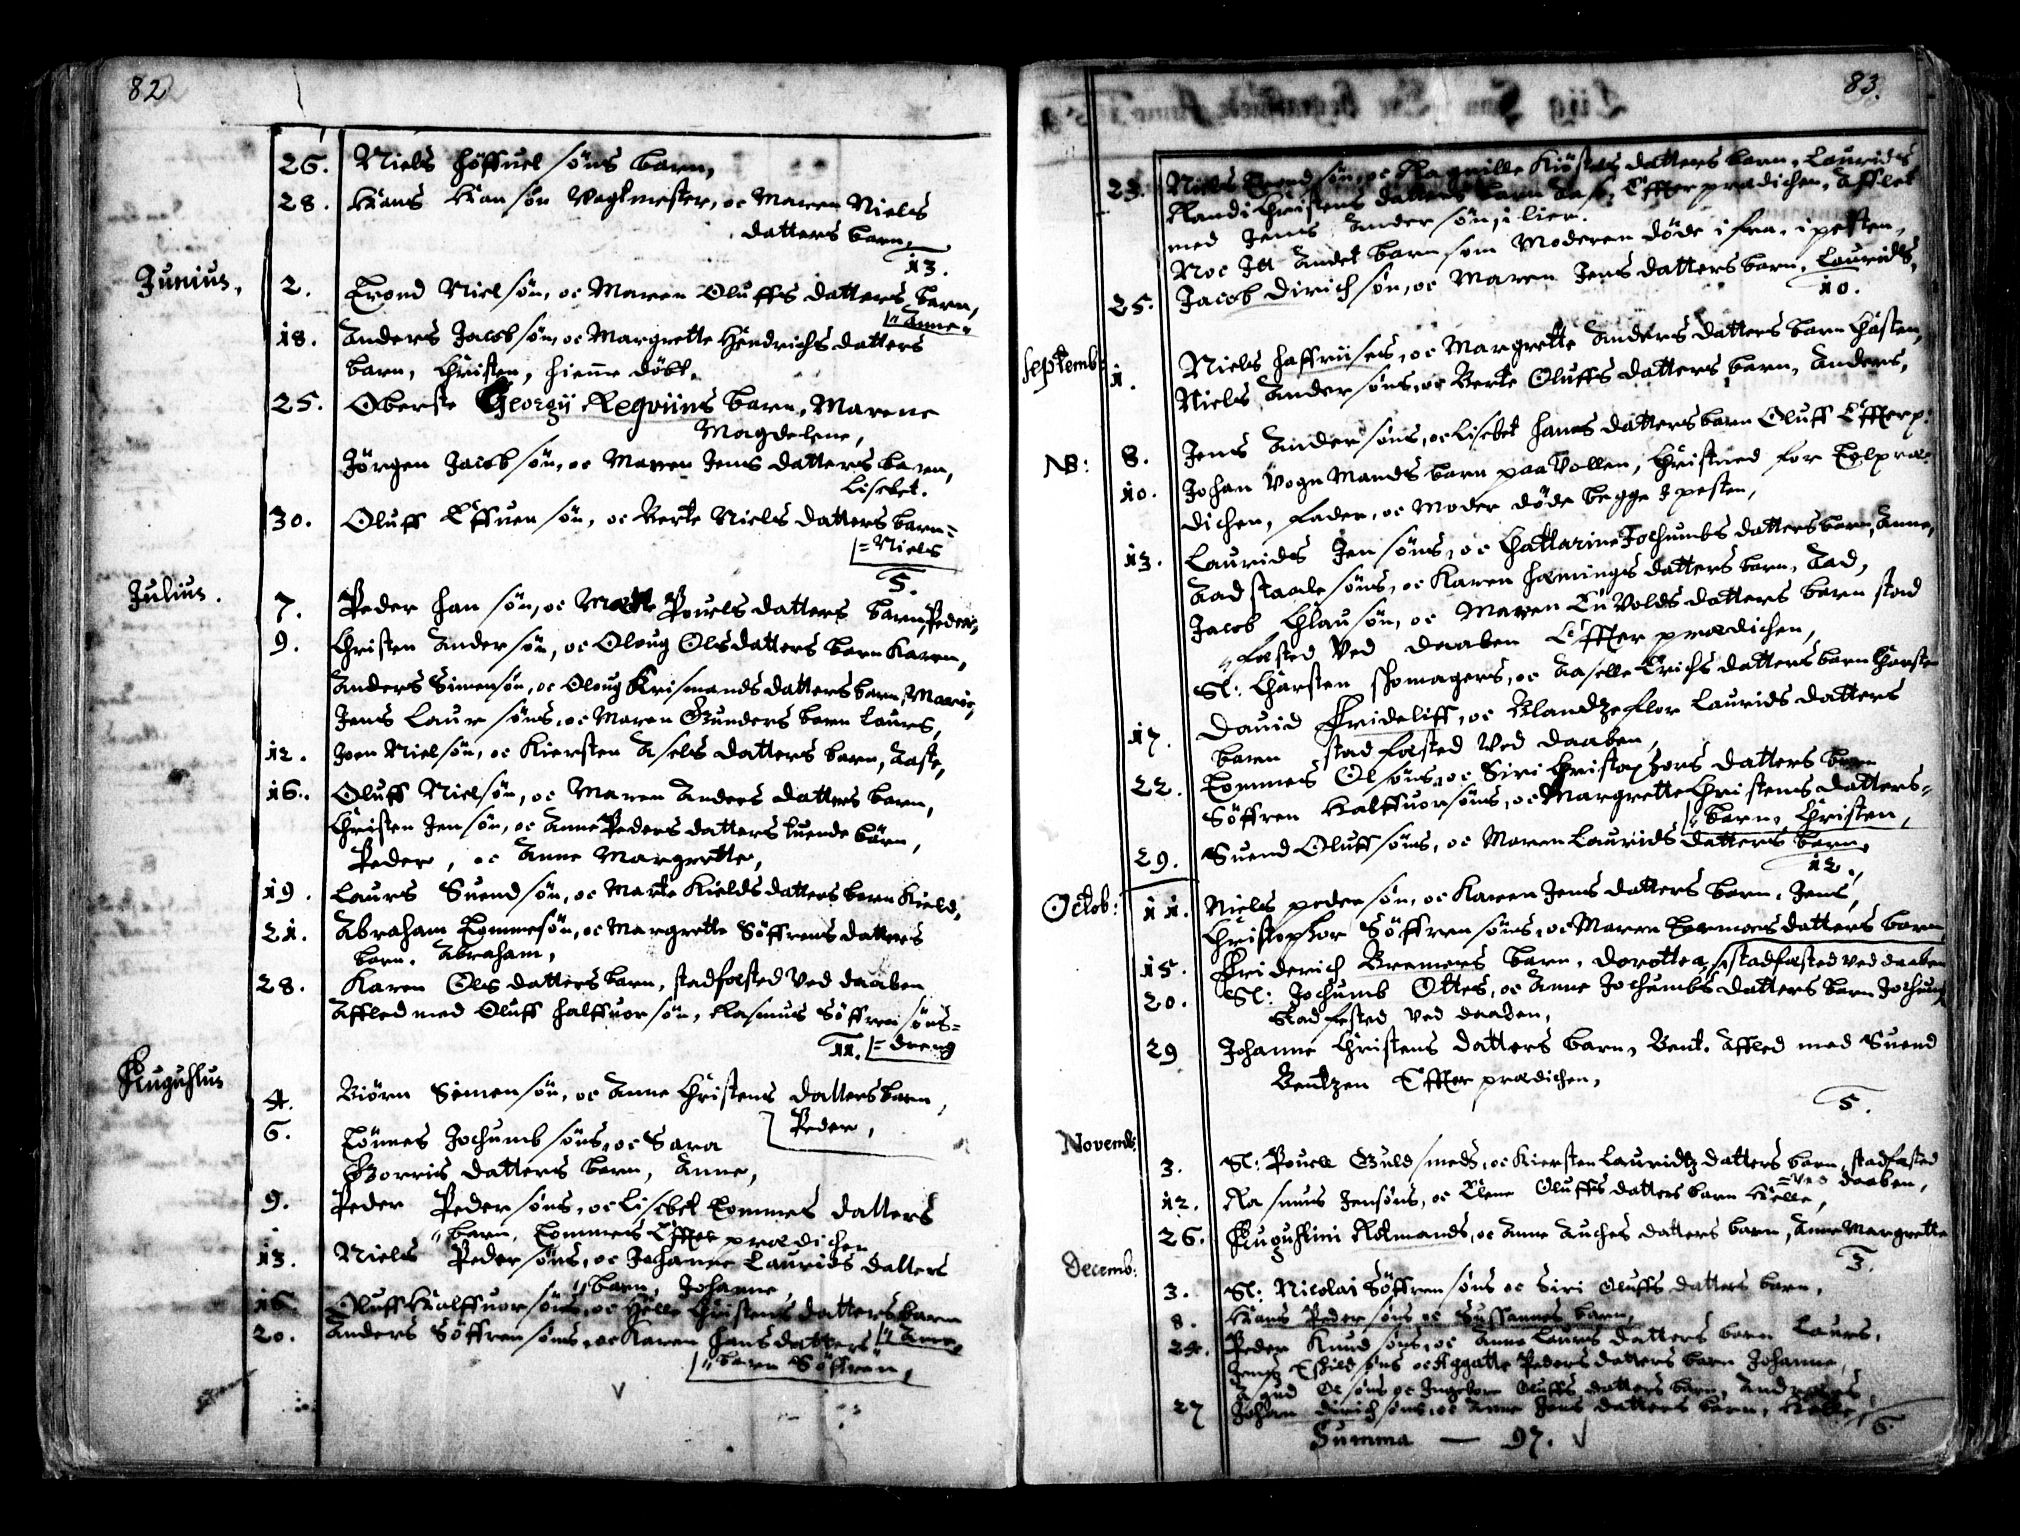 82
26. Niels Høffuel søns barn,
28. Hans Hansøn Vagtmester, oc Maren Niels
datters barn,
13.
Junius.
2. Trond Nielsøn, oc Maren Oluffs datters barn,
Anne,
18. Anders Jacobsøn, oc Margrette Hendrichs datters
barn, Christen, hieme døbt.
25. Oberste Georgii barn, Marene
Magdelene,
Jørgen Jacobsøn, oc Maren Jens datters barn,
Lisebet.
30. Oluff Effuensøn, oc Berte Niels datters barn=
=Niels
5.
Julius.
7. Peder Hansøn, oc Mette Pouels datters barn Peder,
9. Christen Andersøn, oc Oloug Olsdatters barn Karen,
Anders Simensøn, oc Oloug datters barn, Marie,
Jens Laursøns, oc Maren Gunders barn Laurs,
12. Iven Nielsøn, oc Kiersten Asels datters barn, Aaste,
16. Oluff Nielsøn, oc Maren Anders datters barn,
Christen Jensøn, oc Anne Peders datters tuende børn,
Peder, oc Anne Margrette,
19. Laurs Suendsøn, oc Marte Kields datters barn Kield,
21. Abraham Tommesøn, oc Margrette Søffrens datters
barn. Abraham,
28. Karen Ols datters barn, stadfæsted Ved daaben
Affled med Oluff Halffuorsøn, Rasmus Søffrensøns=
11. =dreng
Augustus
4. Biørn Simensøn, oc Anne Christens datters barn,
Peder,
6. Tønnes Jochumbsøns, oc Sara
Gorris datters barn, Anne,
9. Peder Pedersøns, oc Lisebet Tommes datters
barn, Tommes Effter prædichen
13. Niels Pedersøns, oc Johanne Laurids datters
barn, Johanne,
16. Oluff Halffuorsøns, oc Helle Christens datters barn
Anne,
20. Anders Søffrensøns, oc Karen Hans datters
barn Søffren,
83.
23. Niels søn, oc Ragnille datters barn, Laurids
Randi Christens datters barn Effter prædichen, Afflet
med Jens Andersøn, i Lier.
Noc It Andet barn som Moderen døde i fra, i pesten,
25. Jacob Dirichsøn, oc Maren Jens datters barn, Laurids,
10.
Septemb:
1. Niels oc Margrette Anders datters barn
Niels Andersøns, oc Berte Oluffs datters barn, Anders,
8. Jens Andersøns, oc Lisebet Hans datters barn Oluff Effter p:
NB:
10. Johan Vogn Mands barn paa Vollen, Christned for
dichen, Fader, oc Moder døde begge I pesten,
13. Laurids Jensøns, oc Chattarine Jochumbs datters barn, Anne,
Aad Staalesøns, oc Karen Hemings datters barn, Aad,
Jacob Clausøn, oc Maren datters barn stad
fæsted Ved daaben Effter prædichen,
Sl: Carsten skomagers, oc Aaselle Erichs datters barn Carsten
17. Dauid Frideliff, oc Blandzeflor Laurids datters
barn stadfæsted Ved daaben,
22. Tommes Olsøns, oc Siri Christophors datters barn
Søffren Halffuorsøns, oc Margrette Christens datters=
barn, Christen,
29. Suend Oluffsøns, oc Maren Laurids datters barn,
12.
Octob:
11. Niels Pedersøn, oc Karen Jens datters barn, Jens,
Christophor Søffrensøns, oc Maren datters barn
15. Friderich Bremers barn, Dorottea, stadfæsted ved daaben
20. Sl: Jochumb Ottes, oc Anne Jochumbs datters barn Jochumb
Stadfæsted Ved daaben,
29 Johanne Christens datters barn, Bent. Affled med Suend
Bentzen Effter prædichen,
5.
Novemb:
3. Sl: Pouell Guldsmeds, oc Kiersten Lauridtz datters barn, stadfæsted
=Ved daaben,
12. Rasmus Jensøns, oc Elene Oluffs datters barn Helle,
26. Augustini oc Anne datters barn, Anne Margrette
3.
Decemb:
3. Sl: Nicolai Søffrensøns oc Siri Oluffs datters barn,
8. Hans Pedersøns oc Sussannes barn,
24. Peder Knudsøns, oc Anne Laurs datters barn Laurs,
Jens Eskildsøns oc Aggatte Peders datters barn Johanne,
Olsøns oc Ingeborre Oluffs datters barn, Andreas,
27 Johan Dirichsøns, oc Anne Jens datters barn, Helle,
6.
Summa — 97.